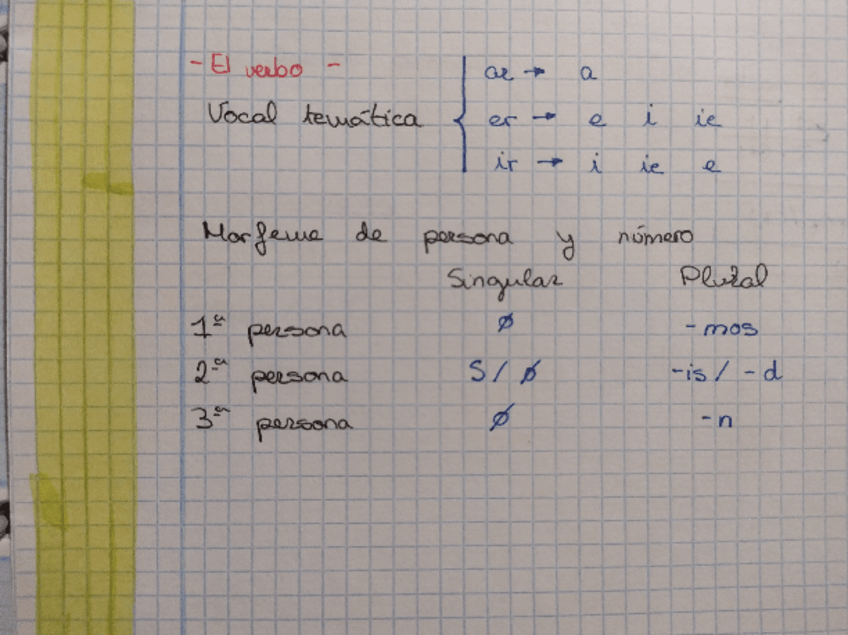 - El verbo -
ar → a
Vocal temática { er → e i ie
ir → i ie e
Morfema de persona y número
Singular Plural
1ª persona ø - mos
2ª persona S / ø -is / - d
3ª persona ø - n